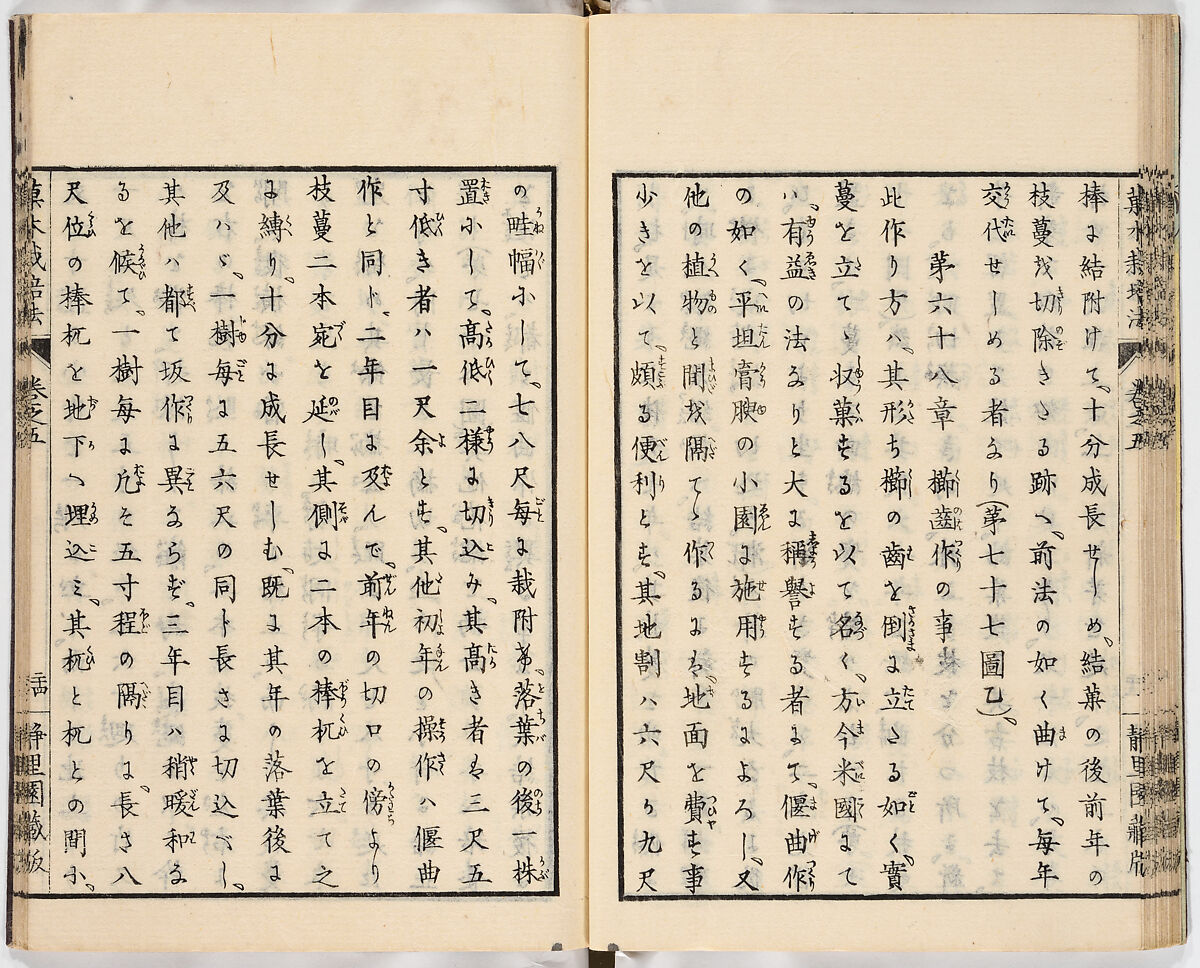 菓木栽培法 卷之五 静里園蔵版
棒に結附けて、十分成長せしめ、結菓の後前年の
枝蔓を切除きたる跡へ、前法の如く曲けて、毎年
交代せしめる者なり(第七十七圖乙)、
第六十八章 櫛齒作の事
此作り方ハ、其形ち櫛の齒を倒に立たる如く、實
蔓を立てゝ収菓するを以て名く、方今米國にて
ハ、有益の法なりと大に稱譽する者にて、偃曲作
の如く、平坦膏腴の小園に施用するによろし、又
他の植物と間を隔てゝ作るには、地面を費す事
少きを以て、頗る便利とす、其地割ハ六尺か九尺
の畦幅にして、七八尺毎に栽附け、落葉の後一株
置にして、髙低二様に切込み、其髙き者は三尺五
寸低き者ハ一尺余とす、其他初年の操作ハ偃曲
作と同ト、二年目に及んで、前年の切口の傍より
枝蔓二本宛を延し、其側に二本の棒杭を立て之
に縛り、十分に成長せしむ、既に其年の落葉後に
及ハゞ、一樹毎に五六尺の同ト長さに切込べし、
其他ハ都て坂作に異ならず、三年目ハ稍暖和な
るを候て、一樹毎に凡そ五寸程の隔りに、長さ八
尺位の棒杭を地下へ埋込ミ、其杭と杭との間に、
菓木栽培法 卷之五 静里園蔵版